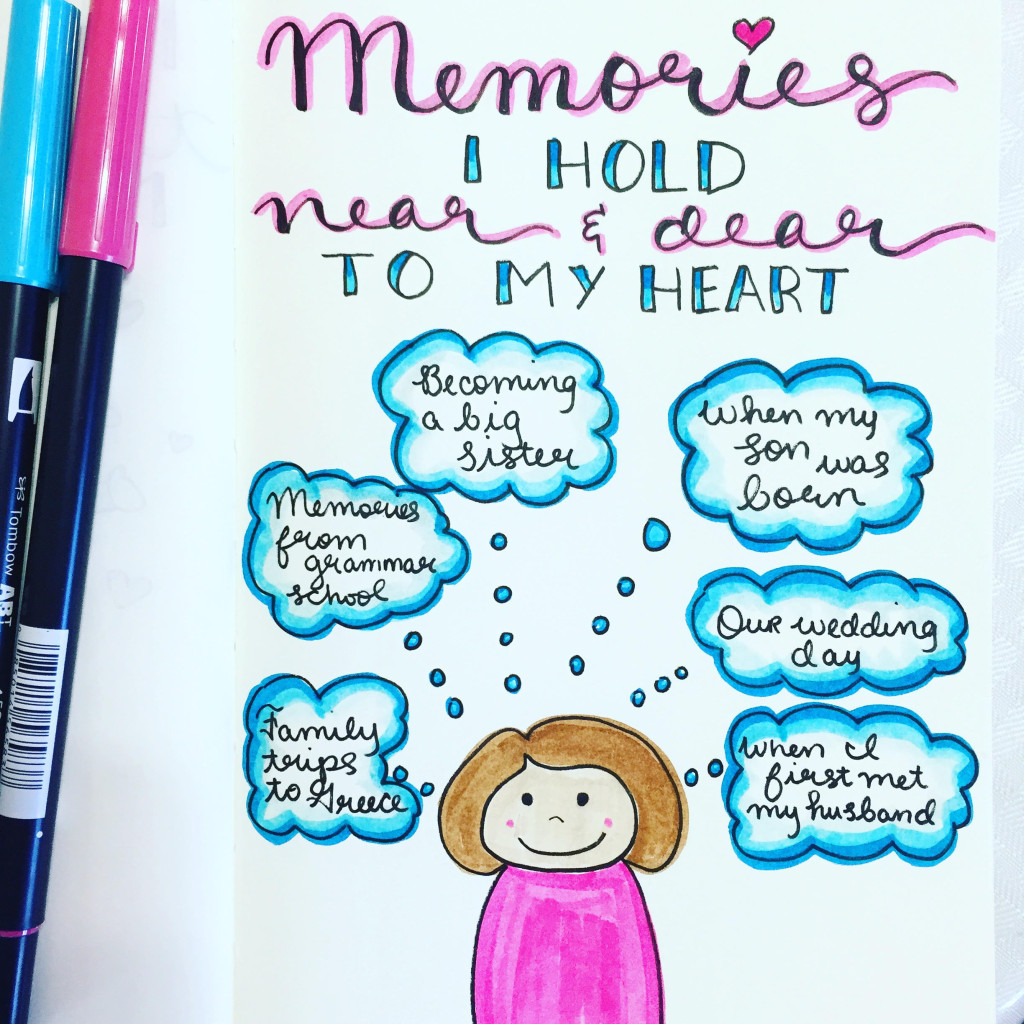 Memories
I HOLD
near & dear
TO MY HEART
Becoming
a big
sister
when my
son was
born
Memories
from
grammar
school
Our wedding
day
Family
trips
to Greece
when I
first met
my husband
Tombow ART